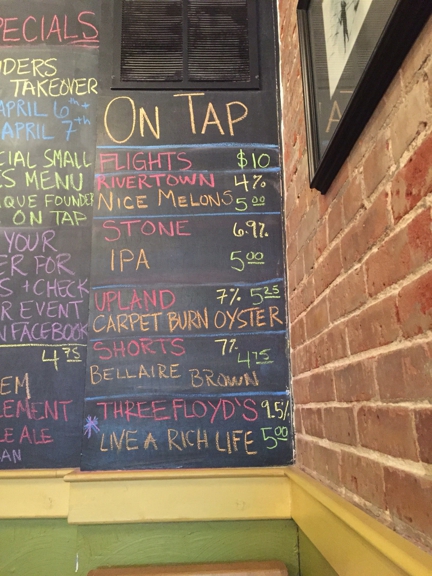 PECIALS
DERS
TAKEOVER
APRIL 6th +
APRIL 7th
CIAL SMALL
S MENU
IQUE FOUNDER
ON TAP
YOUR
ER FOR
S + CHECK
R EVENT
N FACEBOOK
4.75
EM
LEMENT
LE ALE
AN
ON TAP
FLIGHTS $10
RIVERTOWN 4%
NICE MELONS 5.00
STONE 6.9%
IPA 5.00
UPLAND 7% 5.25
CARPET BURN OYSTER
SHORTS 7% 4.75
BELLAIRE BROWN
THREE FLOYD'S 9.5%
LIVE A RICH LIFE 5.00